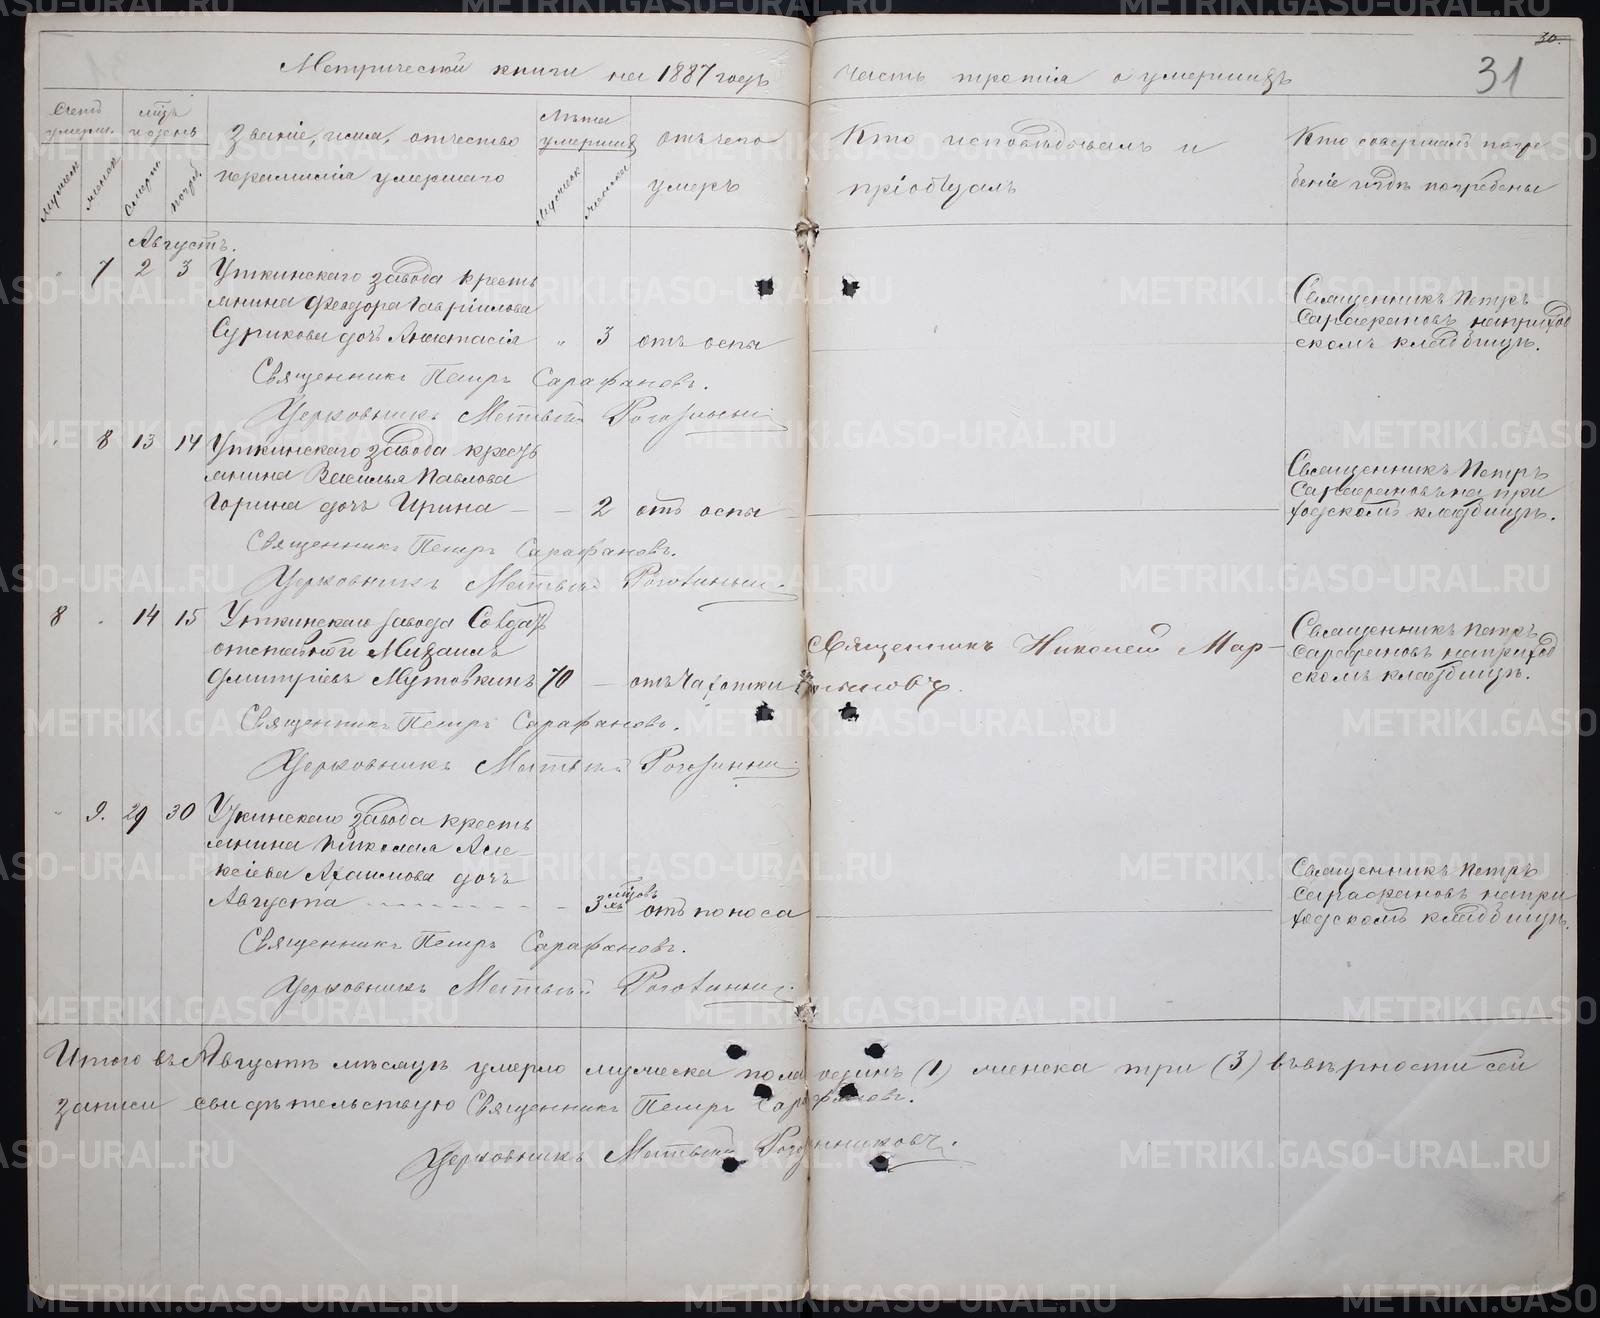 Метрической книги на 1887 годъ часть третія о умершихъ
30.
31
Счетъ умерш.
мужеск
женск
мѣц. и день
смерт.
погреб.
Званіе, имя, отчество
и фамилія умершаго
Лѣта умерших
мужеск
женска
отъ чего
умеръ
Кто исповѣдывалъ и
пріобщалъ
Кто совершалъ погре
беніе и гдѣ погребены
Августъ.
" 7 2 3 Уткинскаго завода кресть
янина Феодора Гавріилова
Сурикова дочь Анастасія " 3 отъ оспы
Священникъ Петръ
Сарафановъ на приход
скомъ кладбищѣ.
Священникъ Петръ Сарафановъ.
Церковникъ Матвѣй
" 8 13 14 Уткинскаго завода кресть
янина Василья Павлова
Горина дочь Ирина — — 2 отъ оспы
Священникъ Петръ
Сарафановъ на при
ходскомъ кладбищѣ.
Священникъ Петръ Сарафановъ.
Церковникъ Матвѣй
8 " 14 15 Уткинскаго завода Солдатъ
отставной Михаилъ
Дмитріевъ Мутовкинъ 70 — отъ чахотки
Священникъ Николай Мар-
Священникъ Петръ
Сарафановъ на приход
скомъ кладбищѣ.
Священникъ Петръ Сарафановъ.
Церковникъ Матвѣй
" 9. 29 30 Уткинскаго завода кресть
янина Николая Але-
ксіева дочь
Августа — 3 мѣсяцовъ отъ поноса
Священникъ Петръ
Сарафановъ на при
ходскомъ кладбищѣ.
Священникъ Петръ Сарафановъ.
Церковникъ Матвѣй
Итого въ Августѣ мѣсяцѣ умерло мужеска пола одинъ (1) женска три (3) въ вѣрности сей
записи свидѣтельствую Священникъ Петръ Сарафановъ.
Церковникъ Матвѣй
METRIKI.GASO-URAL.RU